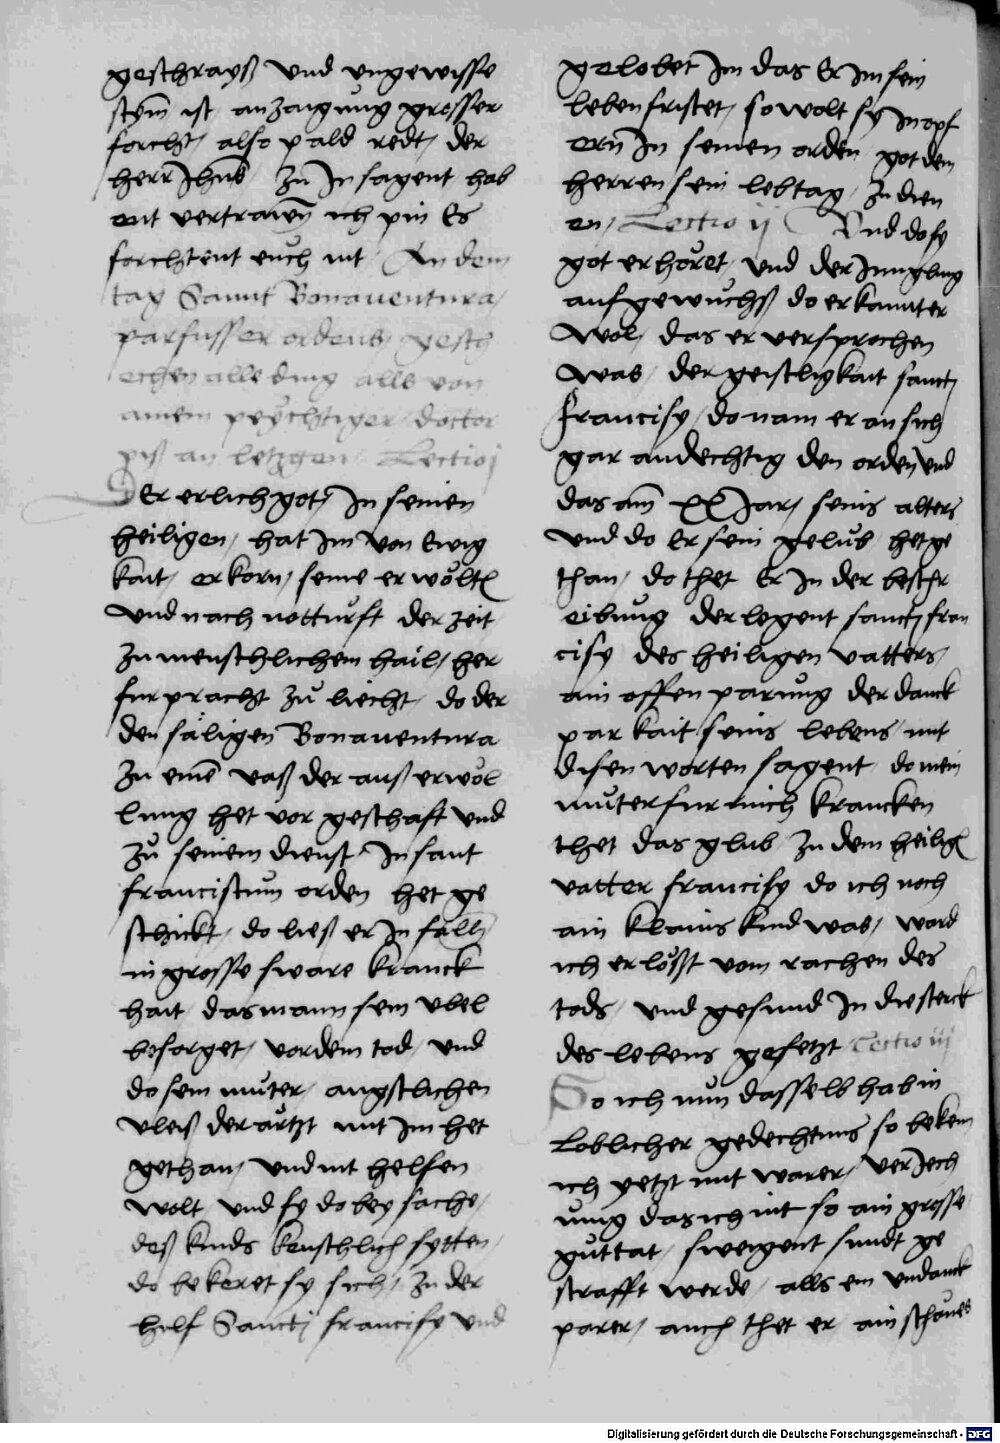 geschrayß und ungewisse
stym̄ ist anzaigung grosser
forcht, also pald redt, der
herr Jhūs zu In sagent hab
ent vertrawē ich pin Es
forchtent euch nit An dem
tag Sannt Bonaventura,
parfusser ordens, gesch
echen alle ding alls von
ainem peychtiger, doctor
piß an letzgen Lectio j
Der erlich got, In seinen
heiligen, hat Im von Ewig
kait, erkorn, seine erwöltē
und nach notturft der zeit
zu menschlichem hail, her
fur pracht zu liecht, do der
den säligen Bonaventura
zu einē vaß der auß erwöl
lung het vor geschaft und
zu seinem dienst In sant
franciscum orden het ge
schickt, do ließ er In fallē
in grosse sware kranck
hait das mann sein ubel
besorget, vor dem tod, und
do sein muter, angstlichen
vleiß der ärtzt mit Im het
gethan, und nit helfen
wolt und sy do bey sache,
deß kinds keuschlich sytten,
do bekeret sy sich, zu der
hilf Sancti francisy und
gelobet Im das Er Im sein
leben fristet, so wolt sy In opf
ern̄ In seinen orden got dem
herren sein lebtag, zu dien
en, Lectio ij Und do sy
got erhöret, und der Jungling
aufgewuchß do erkannt er
wol, das er versprochen
was, der geistligkait sancti
francisy, do nam er an sich
gar andechtig den orden und
das am̄ XX Jar, seins alters
und do Er sein gelub, het ge
than, do thet Er In der beschr
eibung der legent sancti fran
cisy des heiligen vatters,
ain offenparung der danck
parkait seins lebens mit
disen worten sagent, do mein
muter fur mich krancken
thet das glub zu dem heiligē
vatter francisy do ich noch
ain klains kind was, ward
ich erlößt vom rachen des
tods, und gesund In die sterck
des lebens gesetzt Lectio iij
So ich nun dasselb hab in
loblicher gedechtnus so beken
ich yetzt mit warer, verJech
ung das ich nit so ain grosse
guttat, sweigent sundt ge
strafft werde, alls ein undanck
parer, auch thet er ain schönes